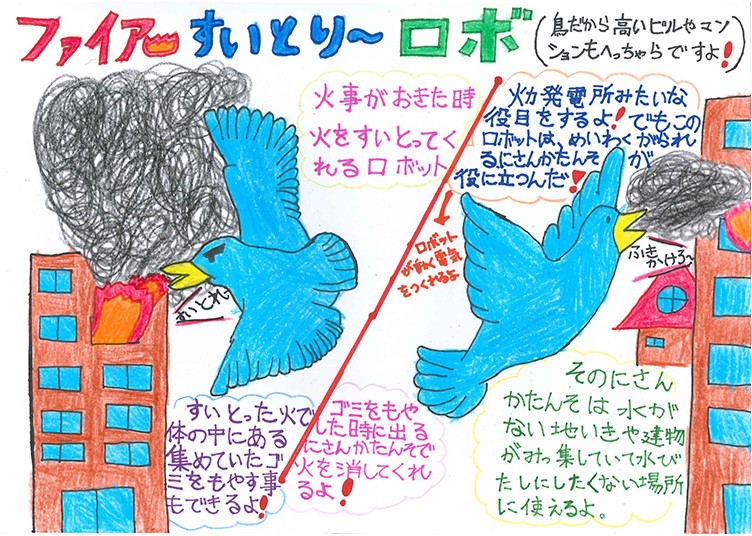 ファイアー すいとり～ ロボ
(鳥だから高いビルやマン
ションもへっちゃらですよ!)
火事がおきた時
火をすいとってく
れるロボット
火力発電所みたいな
役目をするよ!でもこの
ロボットは、めいわくがられ
るにさんかたんそが
役に立つんだ!
ロボット
が動く電気
をつくれるよ
すいとれ
ふき
かけろ～
すいとった火で
体の中にある
集めていたゴ
ミをもやす事
もできるよ!
ゴミをもや
した時に出る
にさんかたんそで
火を消してくれ
るよ!
そのにさん
かたんそは水が
ない地いきや建物
がみっ集していて水び
たしにしたくない場所
に使えるよ。